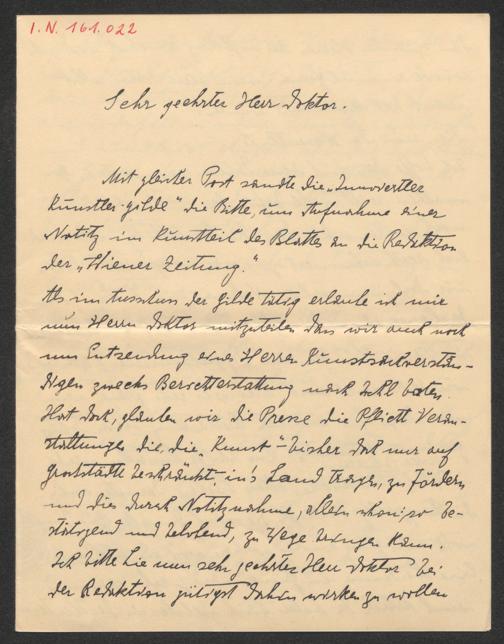 I.N. 161.022
Sehr geehrter Herr Doktor.
Mit gleicher Post sandte die „Innviertler
Künstler-gilde" die Bitte, um Aufnahme einer
Notitz im Kunstteil des Blattes an die Redaktion
der „Wiener Zeitung."
Als im Ausschuss der Gilde tätig erlaube ich mir
nun Herrn Doktor mitzuteilen dass wir auch noch
um Entsendung eines Herren Kunstsachverstän-
digen zwecks Berichterstattung nach baten.
Hat doch, glauben wir die Presse die Pflicht Veran-
staltungen die, die „Kunst"- bisher doch nur auf
Großstädte beschränkt, in's Land tragen, zu fördern
und dies durch Notitznahme, allein schon, so be-
stätigend und belobend, zu Wege bringen kann.
Ich bitte Sie nun sehr geehrter Herr Doktor bei
der Redaktion gütigst dahin wirken zu wollen